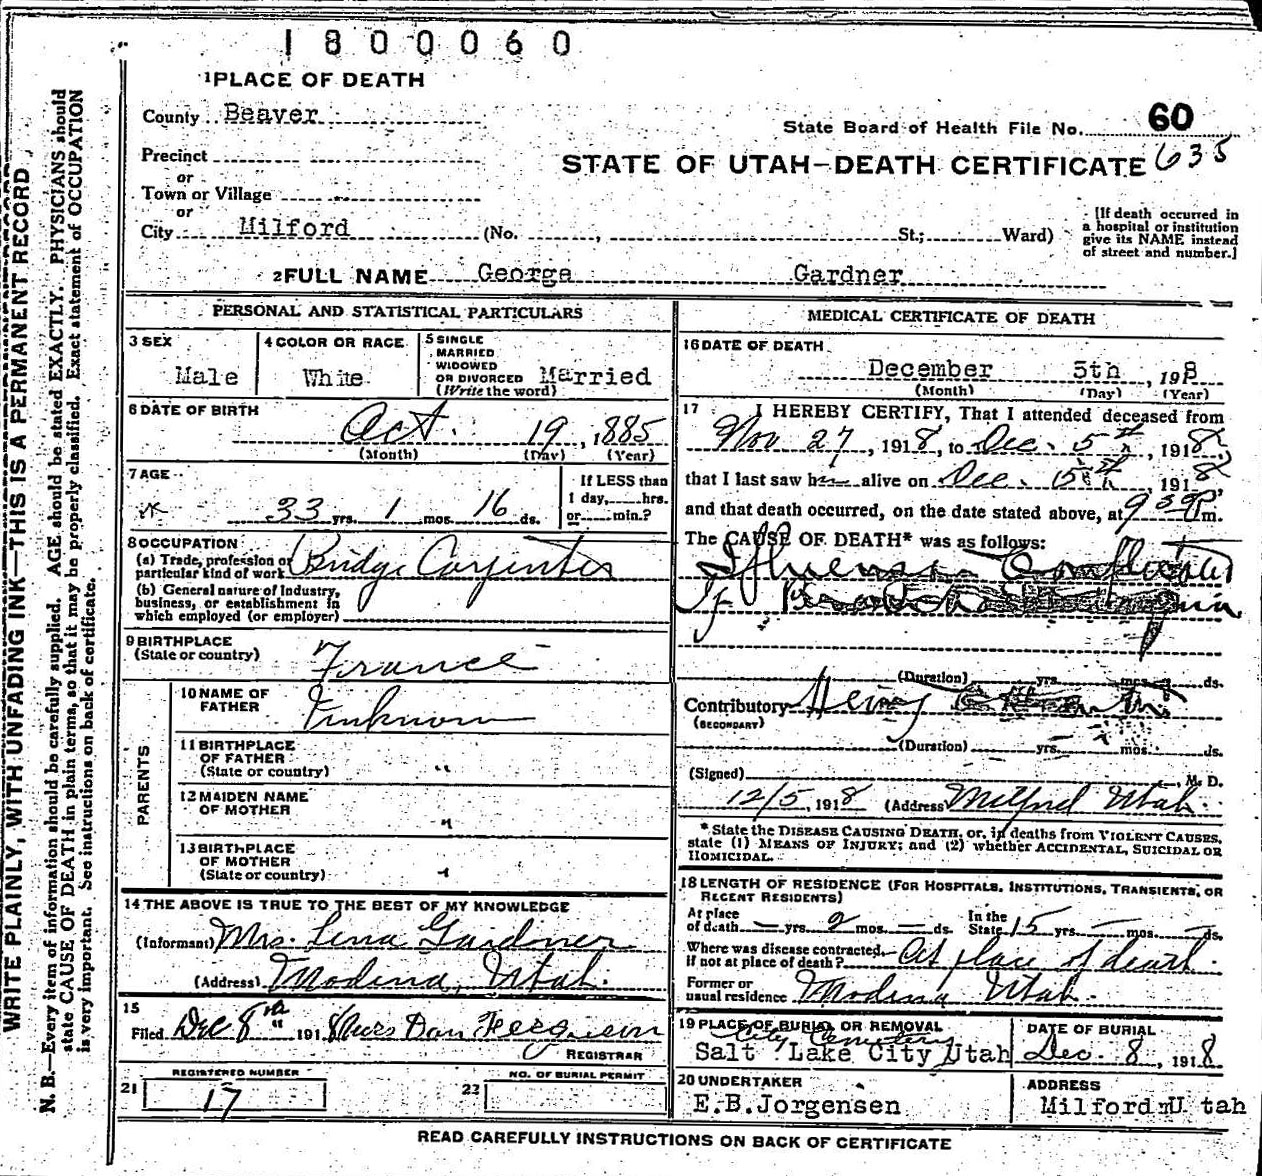 1800060
1 PLACE OF DEATH
County Beaver
State Board of Health File No. 60
Precinct
or
STATE OF UTAH—DEATH CERTIFICATE 635
Town or Village
or
City Milford (No. , St.; Ward)
[If death occurred in
a hospital or institution
give its NAME instead
of street and number.]
2 FULL NAME George Gardner
WRITE PLAINLY, WITH UNFADING INK—THIS IS A PERMANENT RECORD
N. B.—Every item of information should be carefully supplied. AGE should be stated EXACTLY. PHYSICIANS should
state CAUSE OF DEATH in plain terms, so that it may be properly classified. Exact statement of OCCUPATION
is very important. See instructions on back of certificate.
PERSONAL AND STATISTICAL PARTICULARS
3 SEX
Male
4 COLOR OR RACE
White
5 SINGLE
MARRIED
WIDOWED
OR DIVORCED Married
(Write the word)
6 DATE OF BIRTH
Oct. 19, 1885
(Month) (Day) (Year)
7 AGE
33 yrs. 1 mos. 16 ds.
If LESS than
1 day, hrs.
or min.?
8 OCCUPATION
(a) Trade, profession or
particular kind of work Bridge Carpenter
(b) General nature of industry,
business, or establishment in
which employed (or employer)
9 BIRTHPLACE
(State or country) France
PARENTS
10 NAME OF
FATHER Unknown
11 BIRTHPLACE
OF FATHER
(State or country) "
12 MAIDEN NAME
OF MOTHER "
13 BIRTHPLACE
OF MOTHER
(State or country) "
14 THE ABOVE IS TRUE TO THE BEST OF MY KNOWLEDGE
(Informant) Mrs. Lena Gardner
(Address) Modena, Utah.
15
Filed Dec 8th 1918 Mrs Dan Ferguson
REGISTRAR
21 REGISTERED NUMBER
17
22 NO. OF BURIAL PERMIT
MEDICAL CERTIFICATE OF DEATH
16 DATE OF DEATH
December 5th, 1918
(Month) (Day) (Year)
17 I HEREBY CERTIFY, That I attended deceased from
Nov 27, 1918, to Dec. 5th, 1918,
that I last saw h alive on Dec. 5th, 1918
and that death occurred, on the date stated above, at 9 P m.
The CAUSE OF DEATH* was as follows:
Influenza
(Duration) yrs. mos. ds.
Contributory
(SECONDARY)
(Duration) yrs. mos. ds.
(Signed) , M. D.
12/5, 1918 (Address) Milford Utah.
* State the DISEASE CAUSING DEATH, or, in deaths from VIOLENT CAUSES,
state (1) MEANS OF INJURY; and (2) whether ACCIDENTAL, SUICIDAL OR
HOMICIDAL.
18 LENGTH OF RESIDENCE (FOR HOSPITALS, INSTITUTIONS, TRANSIENTS, OR
RECENT RESIDENTS)
At place
of death — yrs. 2 mos. — ds.
In the
State 15 yrs. — mos. — ds.
Where was disease contracted,
if not at place of death? At place of death.
Former or
usual residence Modena Utah.
19 PLACE OF BURIAL OR REMOVAL
City Cemetery
Salt Lake City Utah
DATE OF BURIAL
Dec. 8, 1918
20 UNDERTAKER
E.B.Jorgensen
ADDRESS
Milford Utah
READ CAREFULLY INSTRUCTIONS ON BACK OF CERTIFICATE